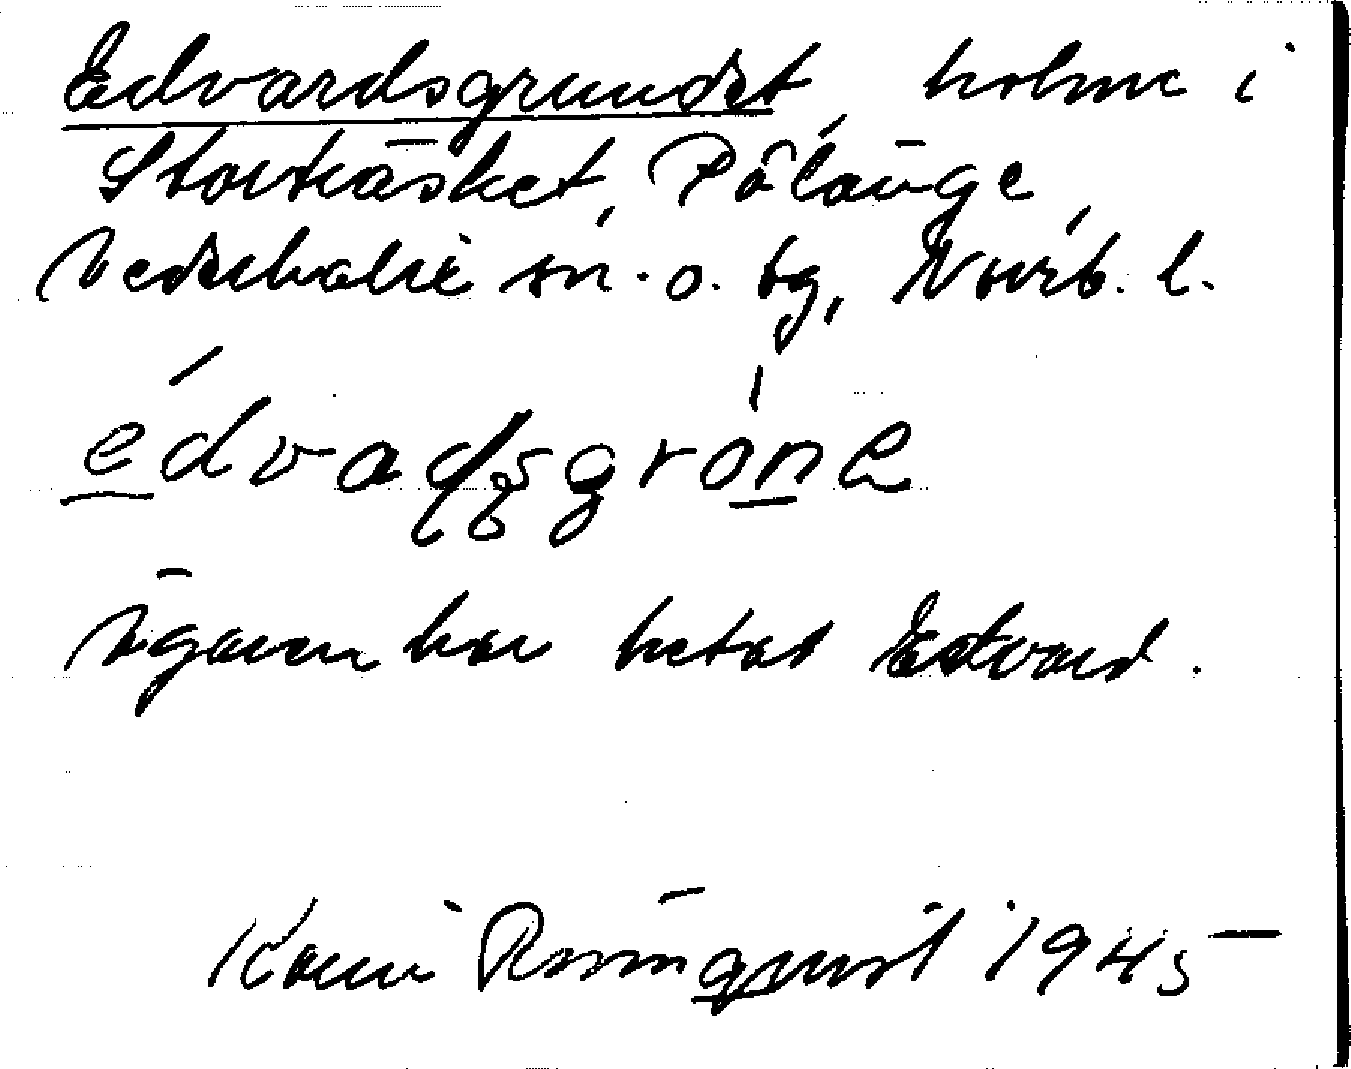 Edvardsgrundet, holme i
Storträsket, Pålänge,
Nederkalix sn. o. tg, Norrb. l.
édvaḍṣgrón̲e
Ägaren har hetat Edvard.
Karin Rönnquist 1945